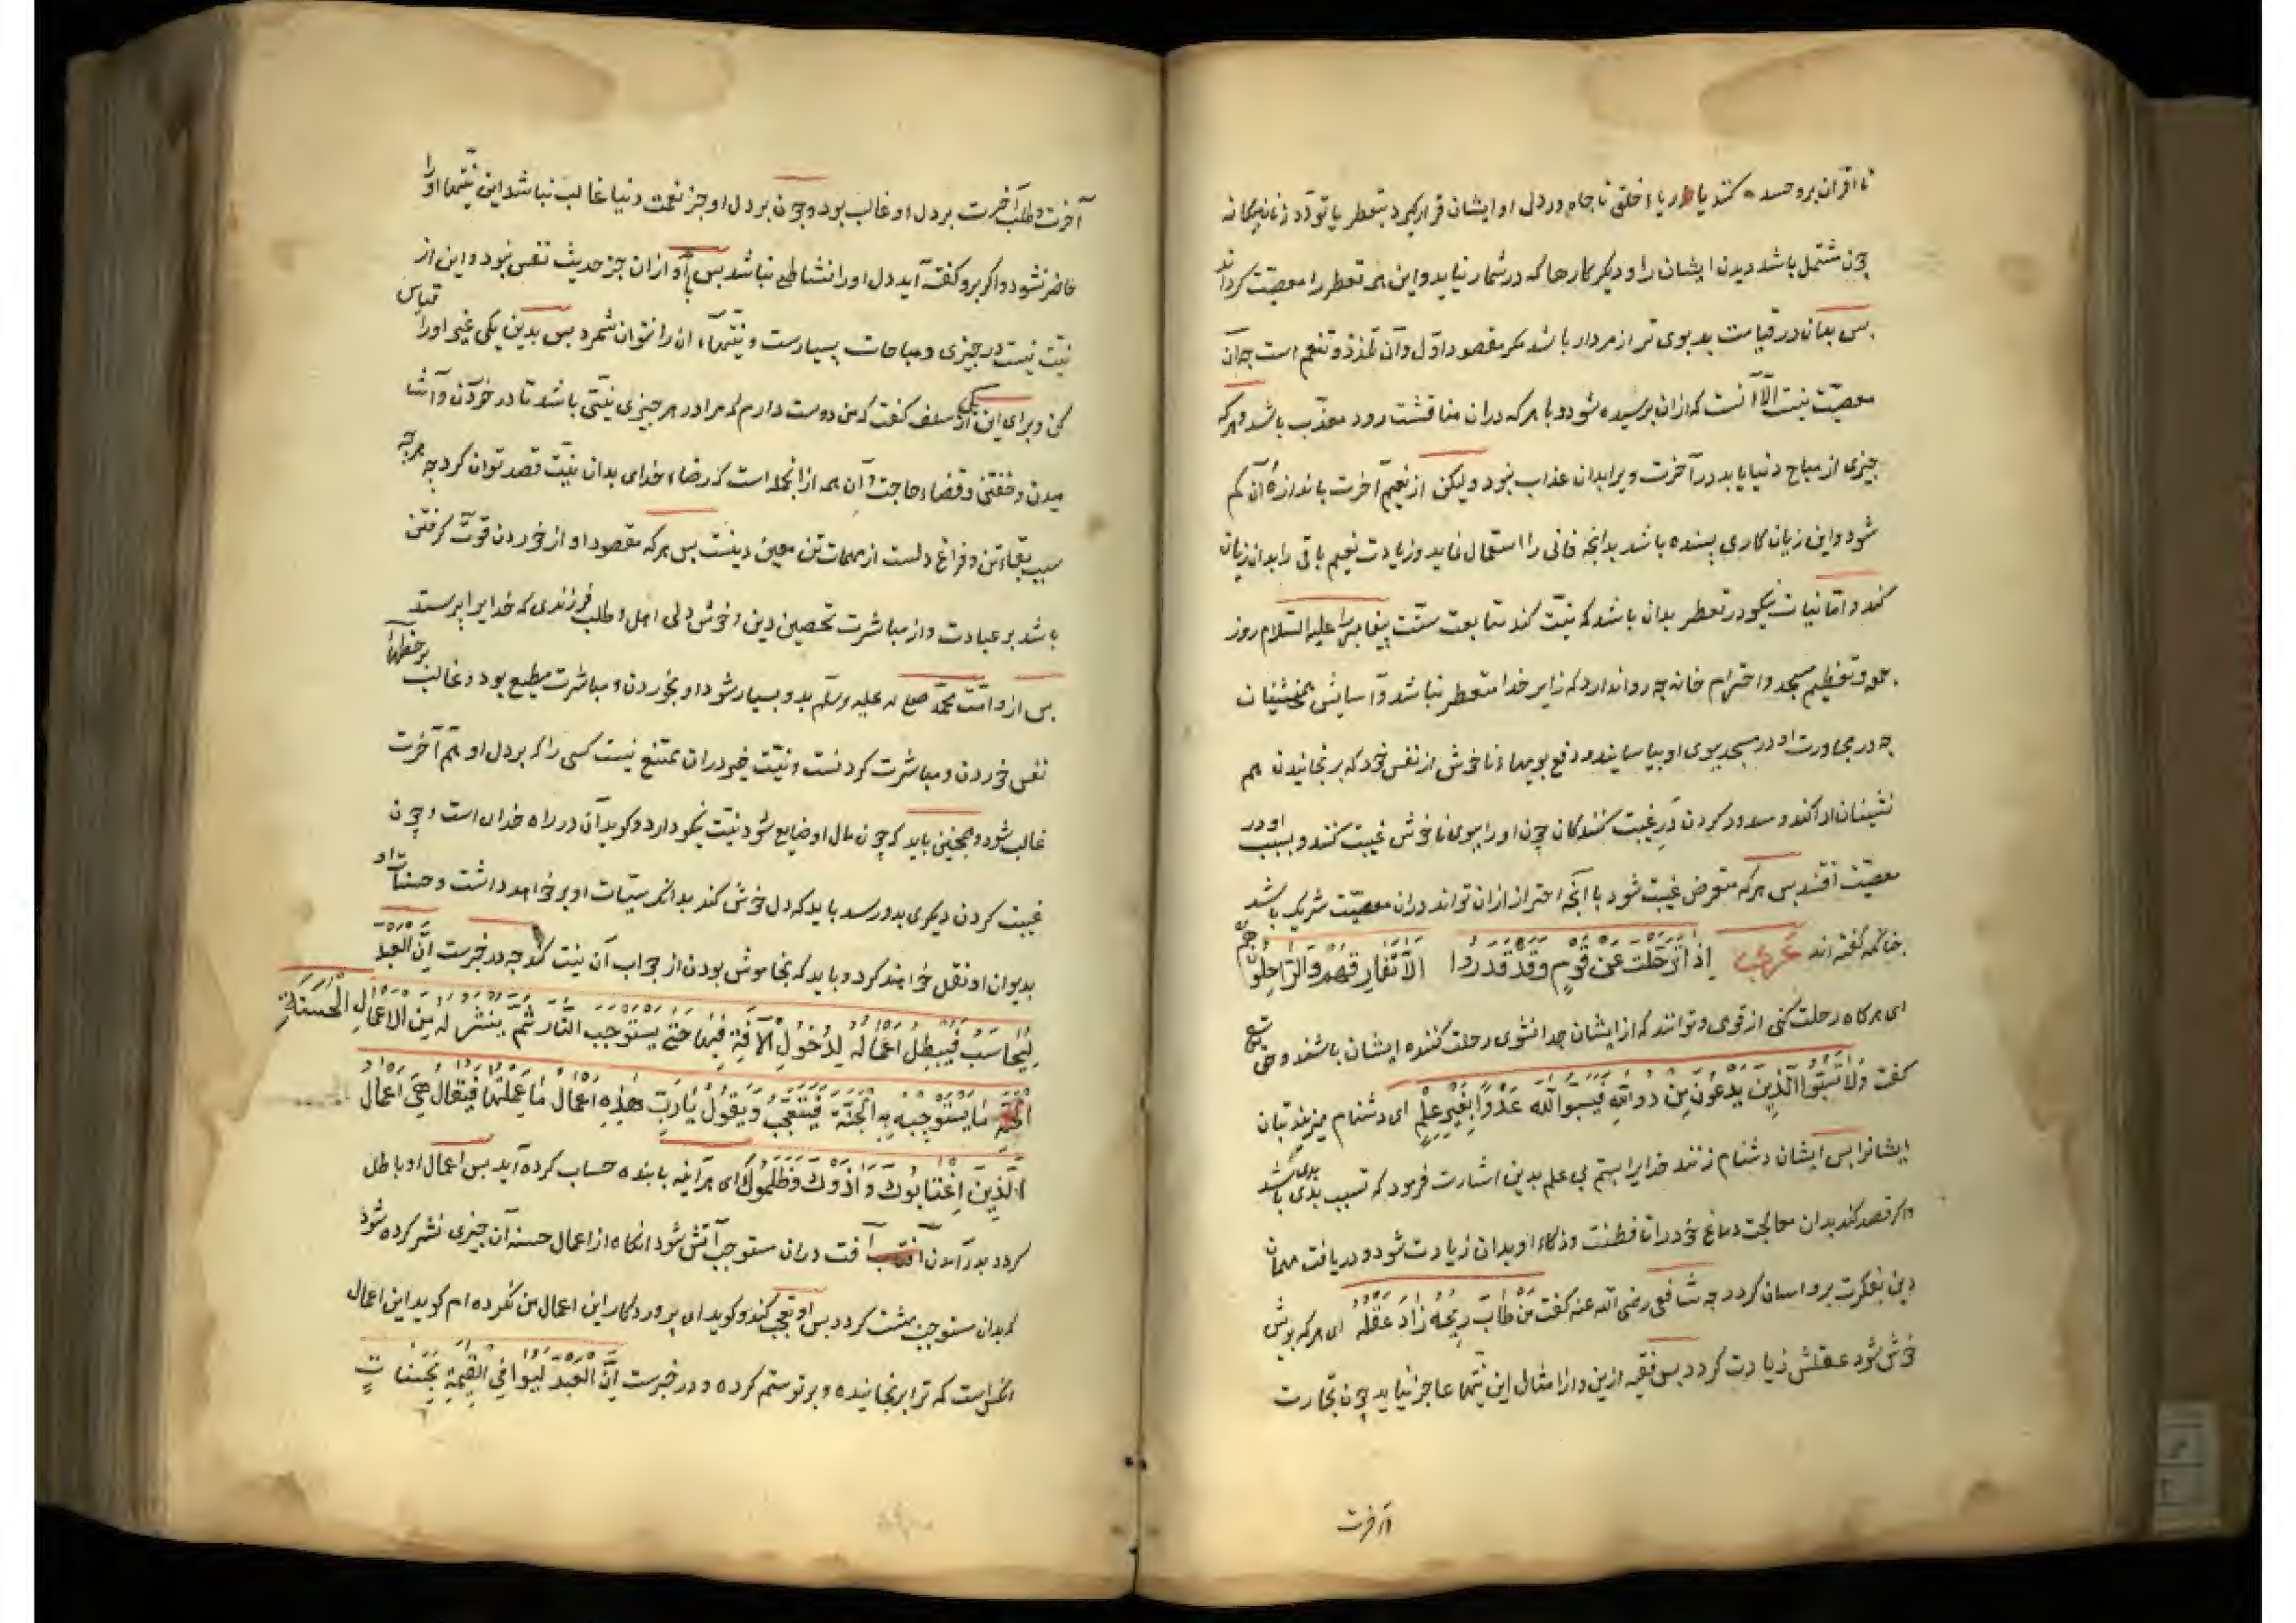 تا اقران برو حسد کنند یا ریاء خلق تا جاه در دل او ایشان قرار گیرد بتعطر یا تودد زنان بیگانه
چون مشتمل باشد دیدن ایشان را و دیگر کارها که در شمار نیاید و این همه تعطر را معصیت گرداند
پس بدان در قیامت بدبوی تر از مردار باشد مگر مقصود اول و آن تلذذ و تنعم است چه آن
معصیت نیست الا آنست که از ان پرسیده شود و با هر که در ان مناقشت رود معذب باشد و هر که
چیزی از مباح دنیا یابد در آخرت ویرا بدان عذاب نبود ولیکن از نعیم آخرت باندازهٔ آن کم
شود و این زیان کاری بسنده باشد بدانچه فانی را استعمال نماید و زیادت نعیم باقی را بدان زیان
کند و اما نیات نیکو در تعطر بدان باشد که نیت کند متابعت سنت پیغامبر را علیه السلام روز
جمعه و تعظیم مسجد و احترام خانه چه روا ندارد که زایر خدا متعطر نباشد و آسایش همنشینان
چه در مجاورت او در مسجد ببوی او بیاسایند و دفع بویهاء ناخوش از نفس خود که برنجانیدن هم
نشینان ادا کند و مسدود کردن در غیبت کنندگان چون او را ببوی ناخوش غیبت کنند و بسبب او در
معصیت افتند پس هر که متعرض غیبت شود با آنچه احتراز از ان تواند در ان معصیت شریک باشد
چنانکه گفته اند عربی اذا ترحلت عن قوم وقد قدروا الا تفارقهم والراحلون هم
ای هر گاه رحلت کنی از قومی و توانند که از ایشان جدا نشوی رحلت کننده ایشان باشند و حق تع
گفت ولا تسبوا الذین یدعون من دون الله فیسبوا الله عدوا بغیر علم ای دشنام مزنید بتان
ایشانرا پس ایشان دشنام زنند خدایرا بستم بی علم بدین اشارت فرمود که تسبب بدی بدی باشد
و اگر قصد کند بدان معالجت دماغ خود را تا فطنت و ذکاء او بدان زیادت شود و دریافت مهمات
دین بفکرت برو اسان گردد چه شافعی رضی الله عنه گفت من طاب ریحه زاد عقله ای هر که بویش
خوش شود عقلش زیادت گردد پس فقیه ازین و از امثال این نیتها عاجز نیاید چون تجارت
آخرت
آخرت و طلب آخرت بر دل او غالب بود و چون بر دل او جز نعمت دنیا غالب نباشد این نیتها او را
حاضر نشود و اگر برو گفته آید دل او را نشاطی نباشد پس با او از ان جز حدیث نفس نبود و این از
نیت نیست در چیزی و مباحات بسیارست و نیتهاء ان را نتوان شمرد پس بدین یکی غیر او را قیاس
کن و برای این یکی از سلف گفت که من دوست دارم که مرا در هر چیزی نیتی باشد تا در خوردن و آشا
میدن و خفتن و قضاء حاجت و آن همه از انجمله است که رضاء خدای بدان نیت قصد توان کرد چه هر چه
سبب بقاء تن و فراغ دلست از مهمات تن معین دینست پس هر که مقصود او از خوردن قوت گرفتن
باشد بر عبادت و از مباشرت تحصین دین و خوش دلی اهل و طلب فرزندی که خدایرا پرستد
پس از و امت محمد صلع له علیه وسلم بدو بسیار شود او بخوردن و مباشرت مطیع بود و غالب بر حظهاء
نفس خوردن و مباشرت کردنست و نیت خیر در ان ممتنع نیست کسی را که بر دل او هم آخرت
غالب شود و همچنین باید که چون مال او ضایع شود نیت نیکو دارد و گوید آن در راه خدای است و چون
غیبت کردن دیگری بدو رسد باید که دل خوش کند بدانکه سیئات او بر خواهد داشت و حسنات او
بدیوان او نقل خواهند کرد و باید که بخاموش بودن از جواب آن نیت کند چه در خبرست ان العبد
لیحاسب فیبطل اعماله لدخول الآفة فیها حتی یستوجب النار ثم ینشر له من الاعمال الحسنة
ما یستوجب به الجنة فیتعجب ویقول یا رب هذه اعمال ما عملتها فیقال هی اعمال
الذین اغتابوک واذوک وظلموک ای هر آینه با بنده حساب کرده آید پس اعمال او باطل
گردد بدر آمدن آفت در ان مستوجب آتش شود انگاه از اعمال حسنه آن چیزی نشر کرده شود
که بدان مستوجب بهشت گردد پس او تعجب کند و گوید ای پروردگار این اعمال من نکرده ام گوید این اعمال
انکس است که ترا برنجانیده و بر تو ستم کرده و در خبرست ان العبد لیوافی القیمة بحسنات